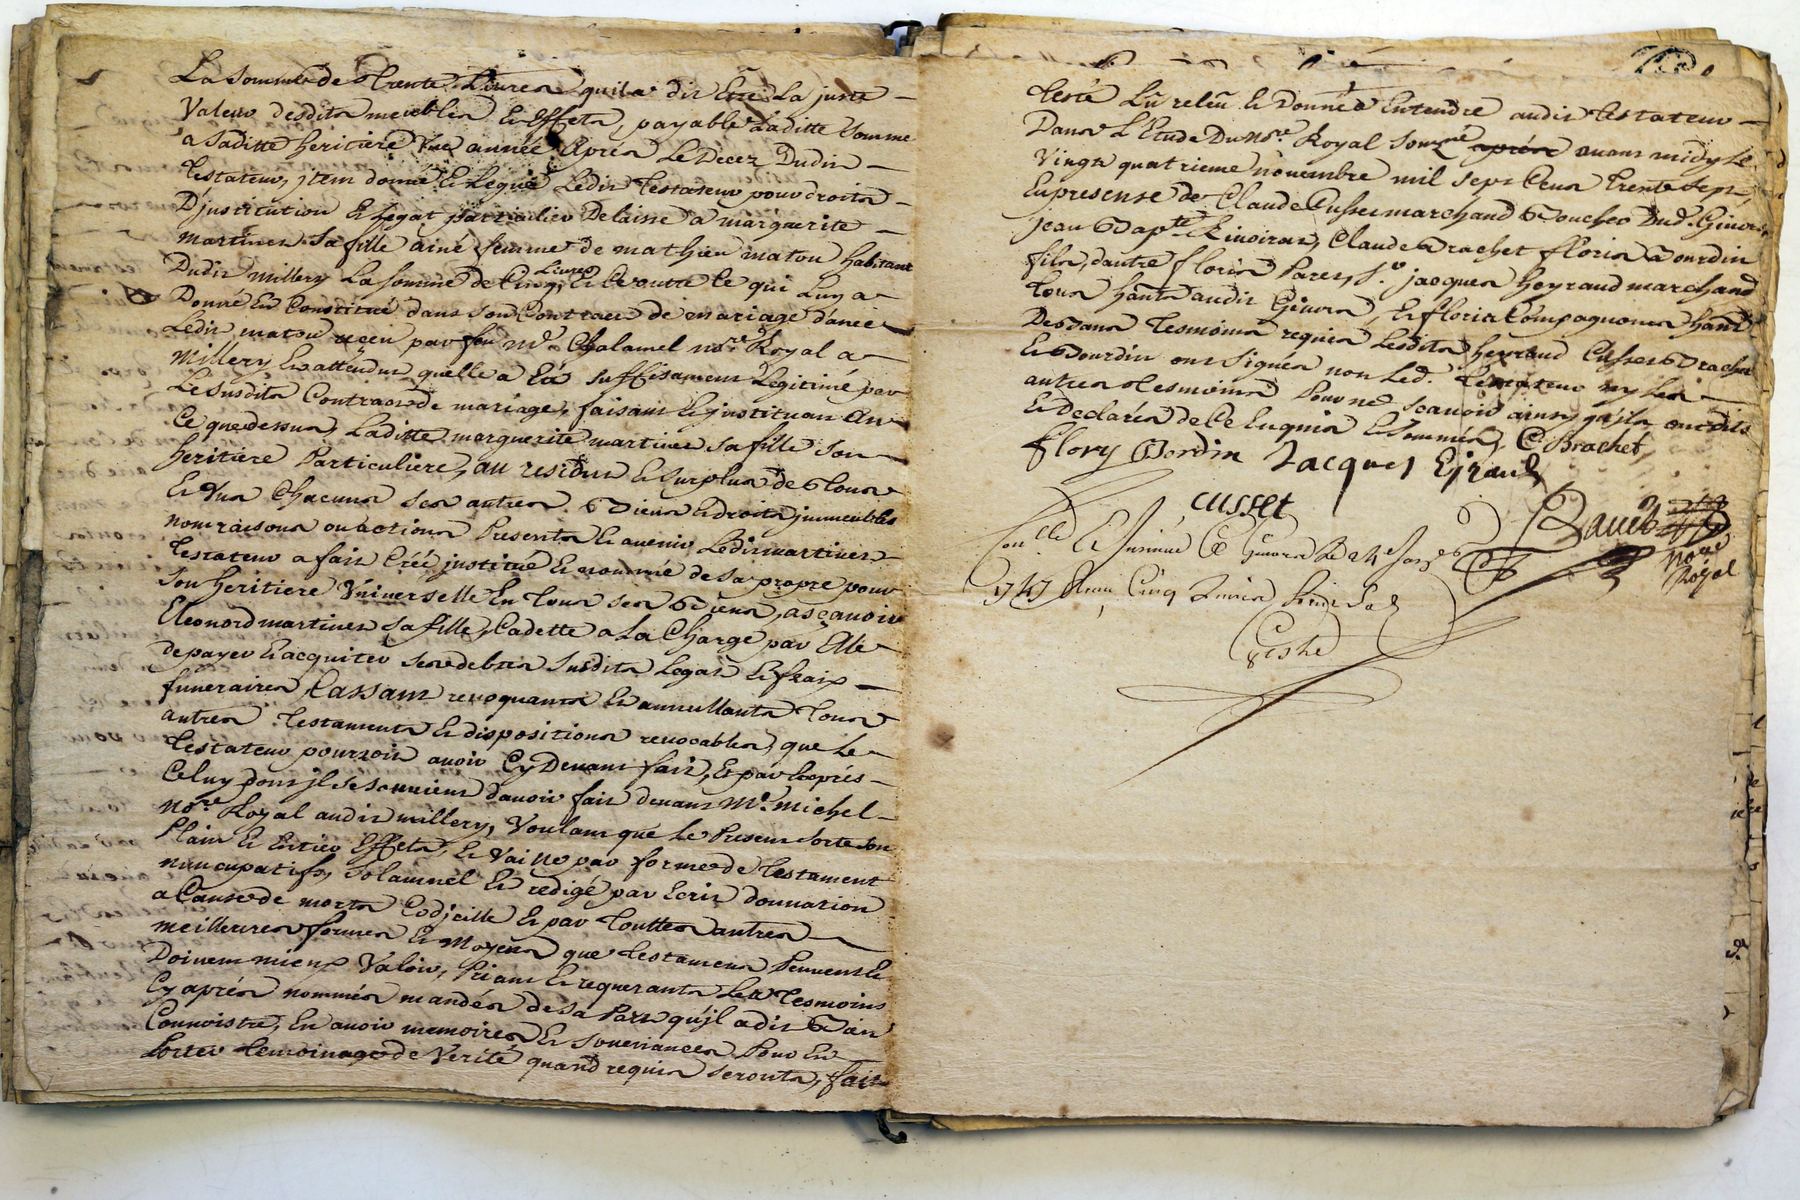 La somme de trente Livres quil a dit Etre La juste
Valeur desdits meubles Et Effets, payable Laditte somme
a Saditte heritiere Une année Aprés Le Decez Dudit
Testateur, jtem donne Et Legue Ledit Testateur pour droits
D'justitution Et Legat particulier Delaisse a marguerite
martinet Sa fille ainé femme de mathieu matou habitant
Dudit millery La somme de Cinq Livres Et Ce outre Ce qui Luy a
Donné Et Constitué dans Son Contract de mariage d'avec
Ledit matou reçeu par feu Me. Chalamel nore. Royal a
millery Et attendu quelle a Eté suffisament Legitimé par
Le Susdits Contract de mariage, faisant Et jnstituant En
Ce que dessus Laditte marguerite martinet sa fille Son
heritiere Particuliere, au residu Et Surplus de Tous
Et Uns Chacuns ses autres Biens Et droits jmmeubles
nom raisons ou actions Presents Et avenir Ledit martinet
Testateur a fait Créé justitué Et nommé de sa propre pour
Son heritiere Universelle En Tous ses Biens, ascavoir
Eleonord martinet sa fille, Cadette a La Charge par Elle
de payer Et acquiter ses debtes Susdits Legat Et fraix
funeraires Cassant revoquants Et annullants Tous
autres Testaments Et dispositions revocables, que Le
Testateur pourroit avoir Cy Devant fait, Et par Exprés
Celuy dont jl se souvient d'avoir fait devant Me. michel
nore. Royal audit millery, Voulant que Le Present Sorte Son
Plain Et Entier Effets, Et Vaille par forme de Testament
nuncupatifs, Solamnel Et redigé par Ecrit donnation
a Cause de morts Codjcille Et par Touttes autres
meilleures formes Et Moyens que Testament Peuvent Et
Doivent mieux Valoir, Priant Et requerants Les Tesmoins
Cy aprés nommés mandés de Sa Part qu'jl a dit Bien
Connoistre, En avoir memoires Et Souveriances Pour En
Porter Temoinage de Verité quand requis seronts, fait
Testé Lû releû Et Donné a Entendre audit Testateur
Dans L'Etude Du Nore. Royal Soussné aprés avant midy Le
Vingts quatrieme novembre mil sept Cent Trente sept
En presense de Claude Cusset marchand Boucher Dud. Givors
Jean Bapte. Claude Brachet floris Bourdin
fils, d'autre floris Sr. jacques heyraud marchand
Tous hants audit Givors, Et floris Compagnones hant
Tesmoins requis Lesdits heyraud Cusset Brachet
Et Bourdin ont Signés non Led. Testateur ny Les
autres Tesmoins Pour ne Scavoir ainsy qu'jls ont dits
Et Declarés de Ce Enquis Et Sommés, C Brachet
flory Bordin Jacques Ejraud
cusset
nore
Royal
Conllé Et jnsinué a Givors Le
1747 Reçu Cinq Livres